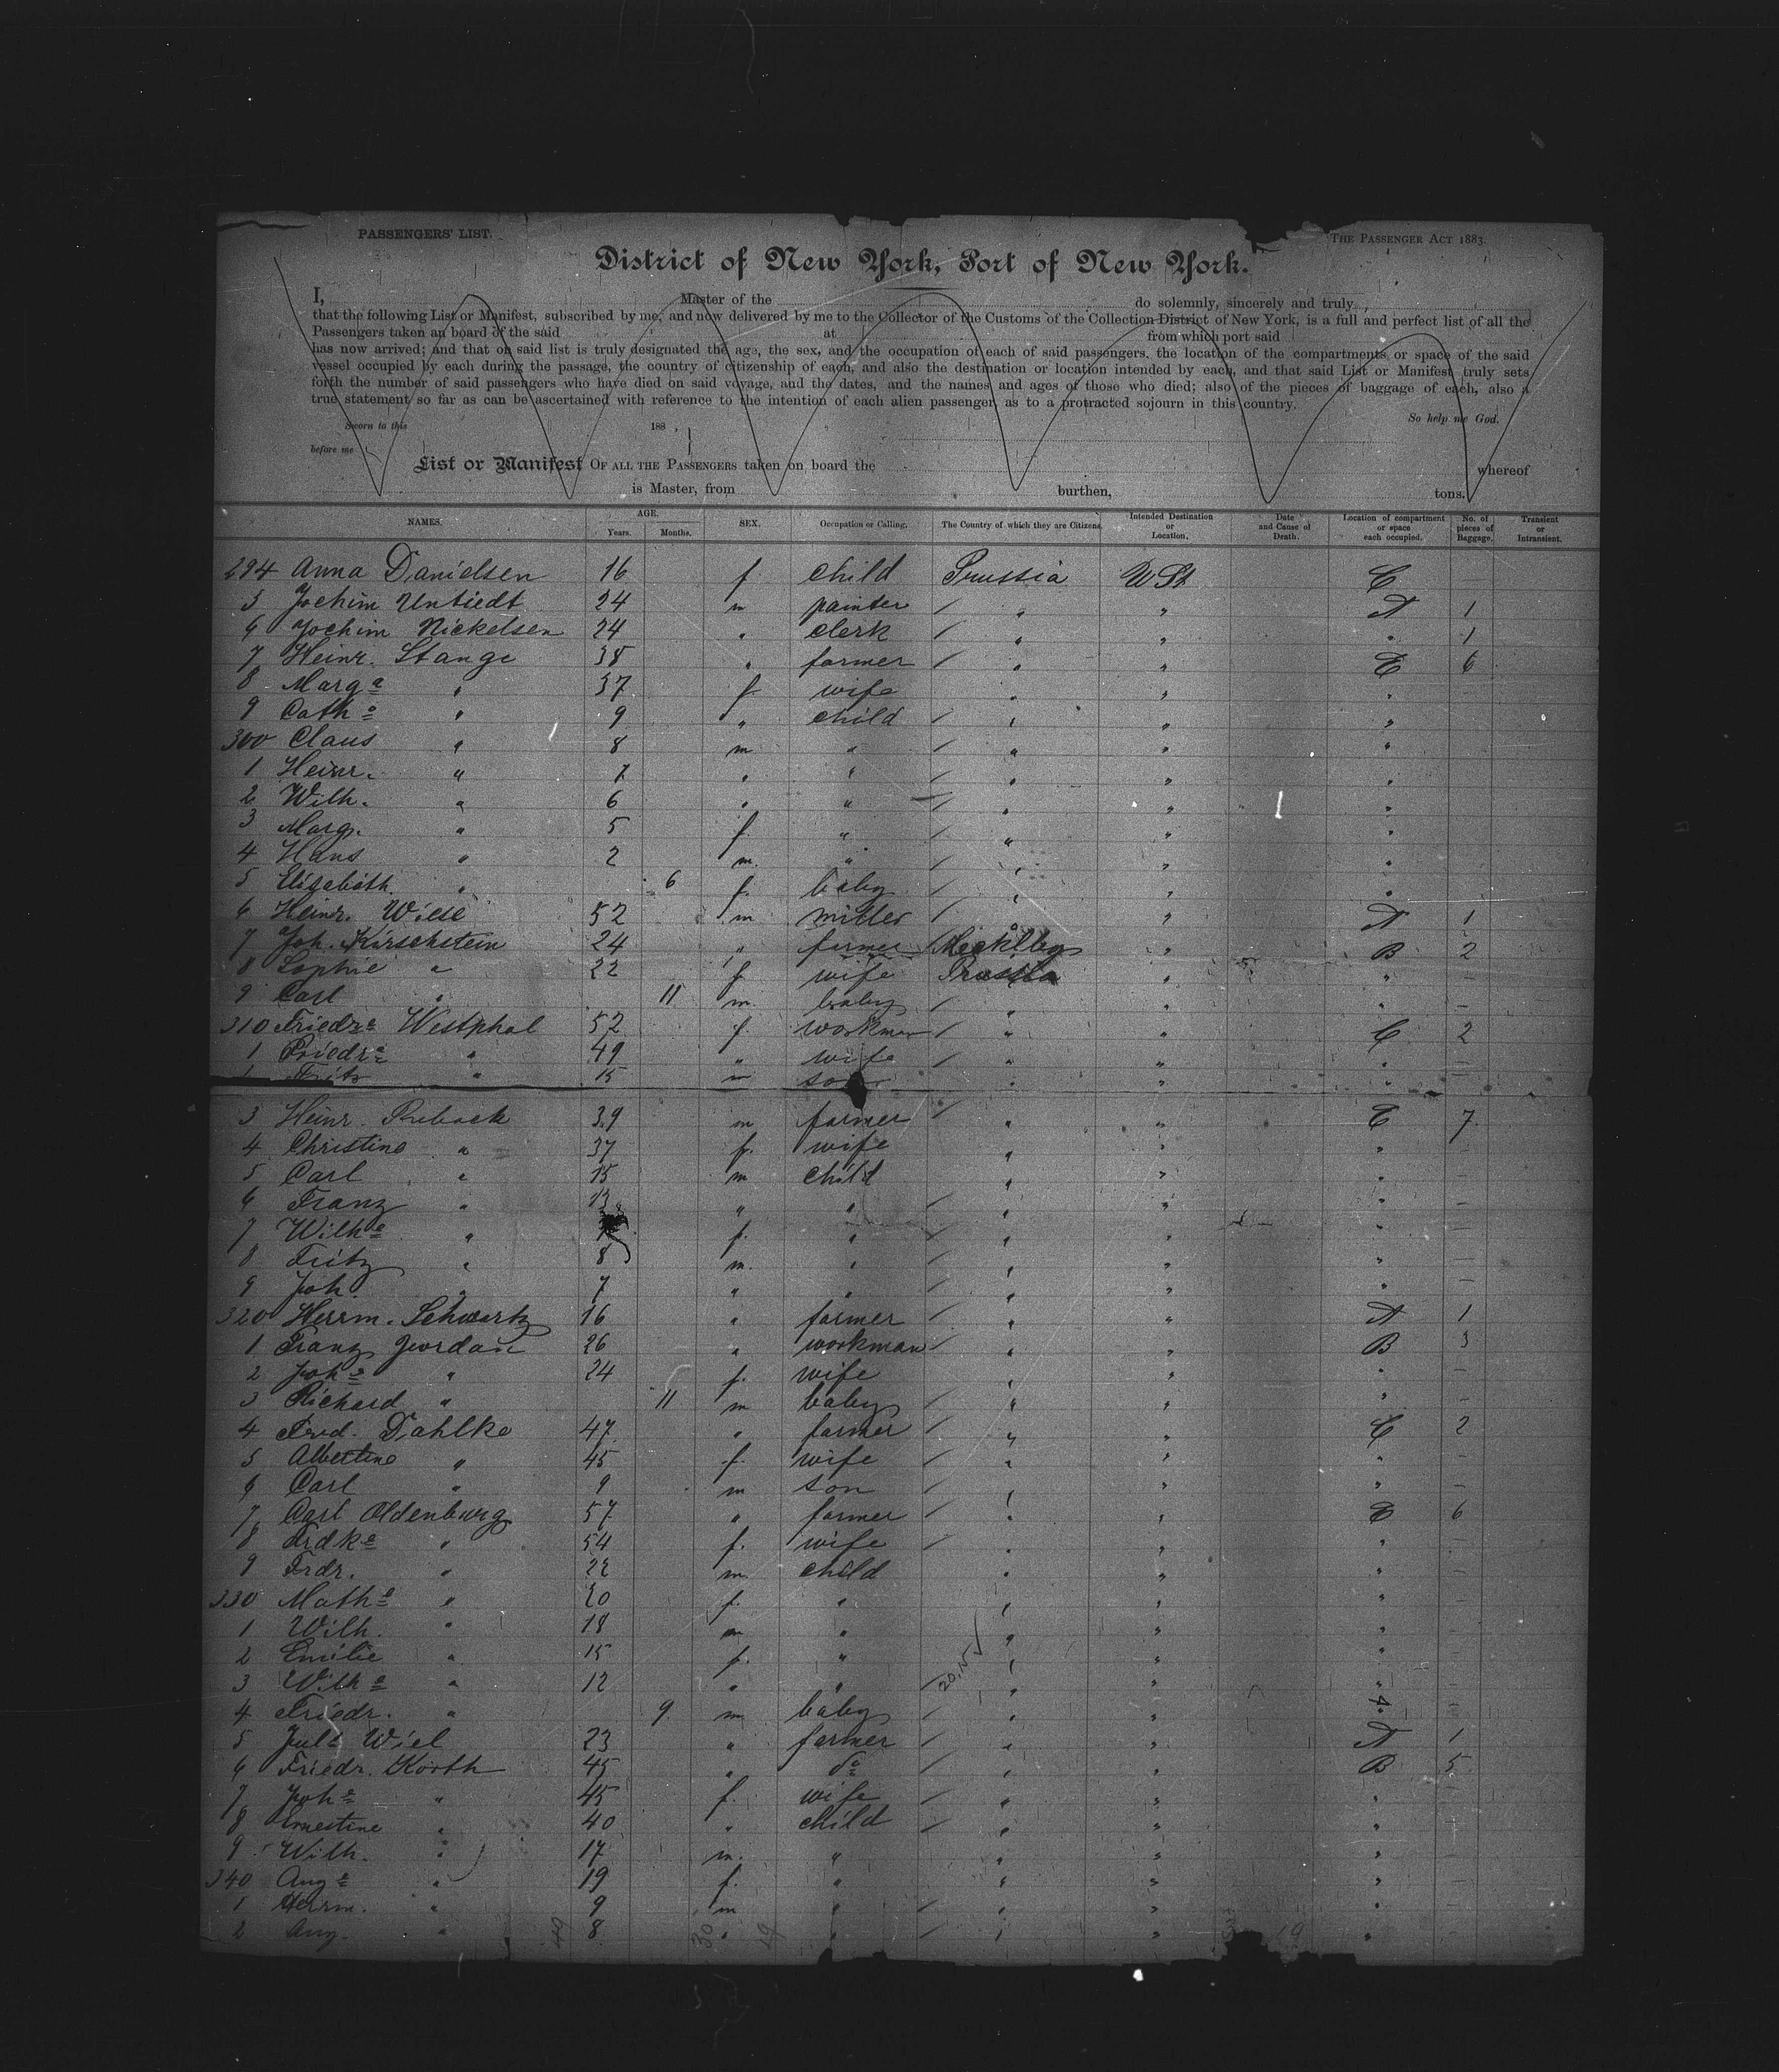 PASSENGERS' LIST.
THE PASSENGER ACT 1883.
District of New York, Port of New York.
I, Master of the do solemnly, sincerely and truly
that the following List or Manifest, subscribed by me, and now delivered by me to the Collector of the Customs of the Collection District of New York, is a full and perfect list of all the
Passengers taken an board of the said at from which port said
has now arrived; and that on said list is truly designated the age, the sex, and the occupation of each of said passengers, the location of the compartments or space of the said
vessel occupied by each during the passage, the country of citizenship of each, and also the destination or location intended by each, and that said List or Manifest truly sets
forth the number of said passengers who have died on said voyage, and the dates, and the names and ages of those who died; also of the pieces of baggage of each, also a
true statement so far as can be ascertained with reference to the intention of each alien passenger, as to a protracted sojourn in this country.
So help me God.
Sworn to this 188 ,
before me
List or Manifest OF ALL THE PASSENGERS taken on board the whereof
is Master, from burthen, tons.
NAMES. AGE. Years. Months. SEX. Occupation or Calling. The Country of which they are Citizens. Intended Destination or Location. Date and Cause of Death. Location of compartment or space each occupied. No. of pieces of Baggage. Transient or Intransient.
294 Anna Danielsen 16 f. child Prussia U St C
5 Jochim Untiedt 24 m painter / " " A 1
6 Jochim Nickelsen 24 " clerk / " " " 1
7 Heinr. Stange 38 " farmer / " " E 6
8 Marga " 37 f wife " " "
9 Cath " 9 " child / " " "
300 Claus " 8 m " / " " "
1 Heinr. " 7 " " / " " "
2 Wilh. " 6 " " / " " "
3 Marg. " 5 f " / " " "
4 Hans " 2 m. " / " " "
5 Elisabeth " 6 f. baby / " " "
6 Heinr. Wiese 52 m miller / " A 1
7 Joh. Kirschstein 24 " farmer / Mecklbg " B 2
8 Sophie " 22 f wife Prussia " " -
9 Carl " 11 m baby / " " " -
310 Friedr Westphal 52 f. workman / " " C 2
1 Friedr " 49 " wife / " " " -
Fritz " 15 m son " " "
3 Heinr. Ruback 39 m farmer / " " E 7
4 Christine " 37 f. wife " " " -
5 Carl " 15 m child " " " -
6 Franz " 13 " " / " " " -
7 Wilhe " f. " / " " " -
8 Fritz " 8 m. " / " " " -
9 Joh. " 7 " " / " " " -
320 Herrm. Schwartz 16 " farmer / " " A 1
1 Franz Jordan 26 " workman / " " B 3
2 Joh " 24 f. wife " " " -
3 Richard " 11 m baby / " " " -
4 Frd. Dahlke 47 " farmer / " " C 2
5 Albertine " 45 f. wife / " " " -
6 Carl " 9 m son / " " " -
7 Carl Oldenburg 57 " farmer / " " E 6
8 Frdke " 54 f. wife / " " "
9 Frdr. " 22 m. child " " "
330 Math " 20 f. " " " " -
1 Wilh. " 18 m " " " " -
2 Emilie " 15 f. " " " "
3 Wilh " 12 " " / " " "
4 Friedr. " 9 m baby / " " "
5 Jul Wiel 23 " farmer / " " A 1
6 Friedr. Korth 45 " do / " " B 5
7 Joh " 45 f. wife / " " "
8 Ernestine " 40 " child / " " "
9 Wilh. " 17 m. " " " "
340 Aug " 19 f. " " " " -
1 Herrm. " 9 m " / " " " -
2 Aug. " 8 " " / " " "